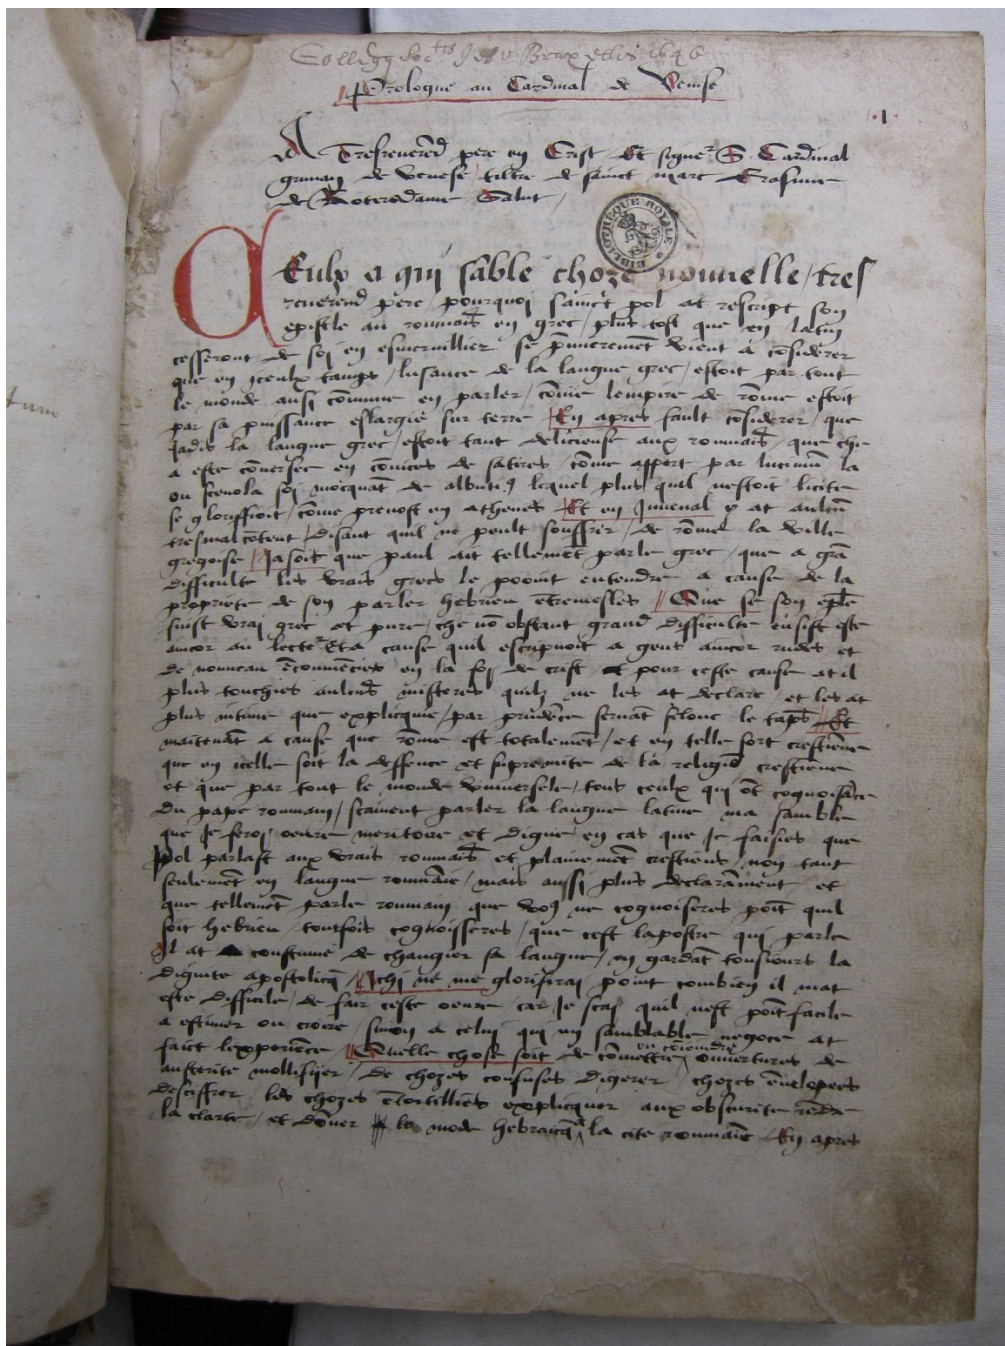 Collegij Soc.tis Jesu Bruxellis 1646
Prologue au Cardinal de Venise
.1.
A Tresreverēd pere en Crist Et signer S. Cardinal
griman de venese, tiltre de sainct marc Erasme
de Roterodame Salut,
BIBLIOTHÈQUE ROYALE
Ceulx a qui sāble choze nouvelle, tres
reverend pere, pourquoi sainct pol at rescript son
epistle au rommais en grec, plus tost que en latin
cesseront de soi en esmervillier se p̄mierement vient a cōsiderer
que en iceulx tamps, lusance de la langue grec, estoit par tout
le monde ausi cōmune en parler, cōme lempire de rōme estoit
par sa puissance eslargie sur terre En apres fault cōsiderer, que
jadis la langue grec, estoit tant delicieuse aux rommais, que che
a este cōversee en cōmices de satires, cōme appert par luciniū la
ou scevola soi mocquāt de lequel plus quil nestoit licite
se gloriffioit, cōme prevost en athenes Et en Juvenal y at aulcū
tresmal cōtent, disant quil ne peult souffrir, de rōme la ville
gregoise Ja soit que paul ait tellemēt parle grec, que a grā
difficulte les vrais grecs le pooint entendre a cause de la
propriete de son parler hebrieu ētremesles Que se son eple
fuist vrai grec et pure, che nō obstant grand difficulte
ancor au lecter Et a cause quil escripvoit a gens ancor rudes et
de nouveau ēcommēciez en la foi de crist, et pour ceste cause at il
plus touchies aulcūs misteres quilz ne les at declare, et les at
plus intime que explicquie, par prudēce servāt selonc le tāps Et
maītenāt a cause que rōme est totalemēt, et en telle sort crestiēne
que en icelle soit la deffence et supremite de la religiō crestiene
et que par tout le monde universele, tous ceulx qui ōt cognoisāce
du pape rommain, scaivent parler la langue latine ma samble
que Je feroi oevre meritoire et digne, en cas que Je faisies que
pol parlast aux vrais rommais et plainemēt crestiens, non tant
seulemēt en langue rommāie, mais aussi plus declarāment et
que tellemēt parle rommain que vo9 ne cognoiseres poīt quil
soit hebrieu, toutfois cognoisseres, que cest lapostre qui parle
Il at constume de changier sa langue, en gardāt tousieurs la
dignite apostolicq Achi ne me glorifirai point combien il mat
este difficile, de fair ceste oevre, car Je scai quil nest poīt facile
a estimer ou croire, sinon a celui qui un samblable negoce at
faict lexperiēce Quelle chose soit de cōmettre ou cōioindre ouvertures de
austerite mollifijer, de chozes confuses digerer, chozes ēvelopees
desciffrer les chozes ētortillies explicquer aux obscurite rēdre
la clarte, et dōner le mode hebraicq a la cite rommaīe, En apres